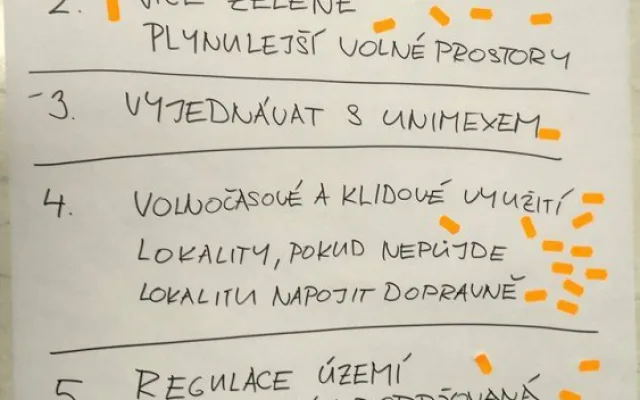 2. VÍCE ZELENĚ
PLYNULEJŠÍ VOLNÉ PROSTORY
3. VYJEDNÁVAT S UNIMEXEM
4. VOLNOČASOVÉ A KLIDOVÉ VYUŽITÍ
LOKALITY, POKUD NEPŮJDE
LOKALITU NAPOJIT DOPRAVNĚ
5. REGULACE ÚZEMÍ